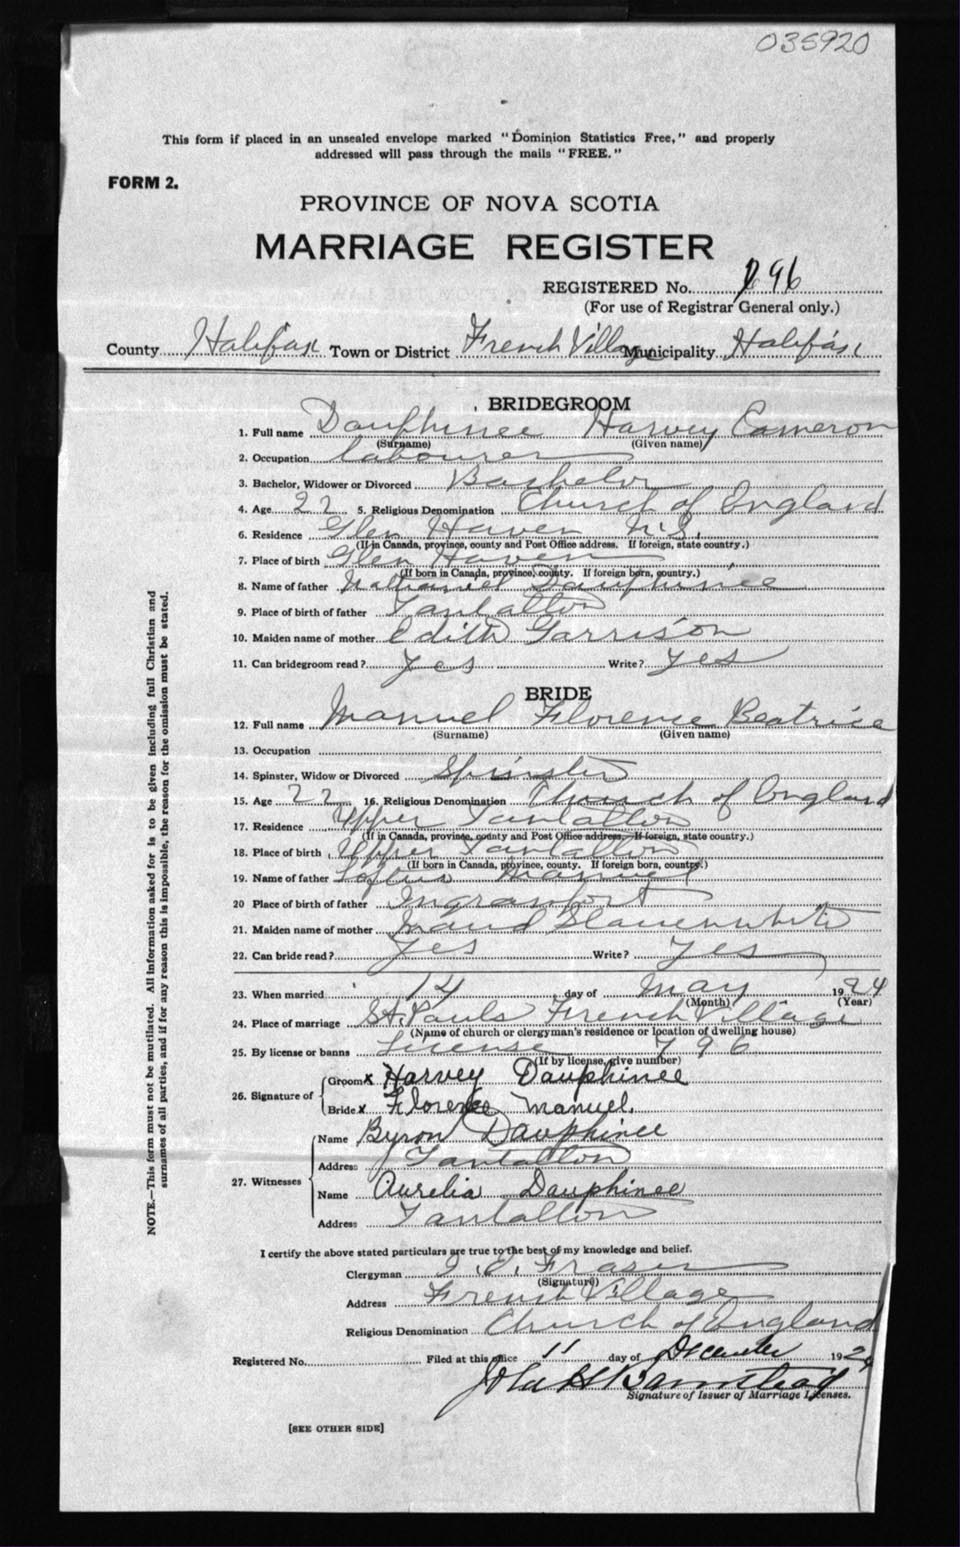 035920
This form if placed in an unsealed envelope marked "Dominion Statistics Free," and properly
addressed will pass through the mails "FREE."
FORM 2.
PROVINCE OF NOVA SCOTIA
MARRIAGE REGISTER
REGISTERED No. 796
(For use of Registrar General only.)
County Halifax Town or District French Village Municipality Halifax
BRIDEGROOM
1. Full name Dauphinee Harvey Cameron
(Surname) (Given name)
2. Occupation labourer
3. Bachelor, Widower or Divorced Bachelor
4. Age 22 5. Religious Denomination Church of England
6. Residence Glen Haven N.S.
(If in Canada, province, county and Post Office address. If foreign, state country.)
7. Place of birth Glen Haven
(If born in Canada, province, county. If foreign born, country.)
8. Name of father Nathaniel Dauphinee
9. Place of birth of father Tantallon
10. Maiden name of mother Edith Garrison
11. Can bridegroom read? yes Write? yes
BRIDE
12. Full name Manuel Florence Beatrice
(Surname) (Given name)
13. Occupation
14. Spinster, Widow or Divorced Spinster
15. Age 22 16. Religious Denomination Church of England
17. Residence Upper Tantallon
(If in Canada, province, county and Post Office address. If foreign, state country.)
18. Place of birth Upper Tantallon
(If born in Canada, province, county. If foreign born, country.)
19. Name of father Loftus Manuel
20 Place of birth of father Ingramport
21. Maiden name of mother Maud Slauenwhite
22. Can bride read? yes Write? yes
23. When married 14 day of May 1924
(Month) (Year)
24. Place of marriage St. Pauls French Village
(Name of church or clergyman's residence or location of dwelling house)
25. By license or banns License 796
(If by license, give number)
26. Signature of
Groom x Harvey Dauphinee
Bride x Florence Manuel.
27. Witnesses
Name Byron Dauphinee
Address Tantallon
Name Aurelia Dauphinee
Address Tantallon
I certify the above stated particulars are true to the best of my knowledge and belief.
Clergyman Fraser
(Signature)
Address French Village
Religious Denomination Church of England
Registered No. Filed at this office 11 day of December 1924
John H Barnstead
Signature of Issuer of Marriage Licenses.
[SEE OTHER SIDE]
NOTE.—This form must not be mutilated. All information asked for is to be given including full Christian and
surnames of all parties, and if for any reason this is impossible, the reason for the omission must be stated.